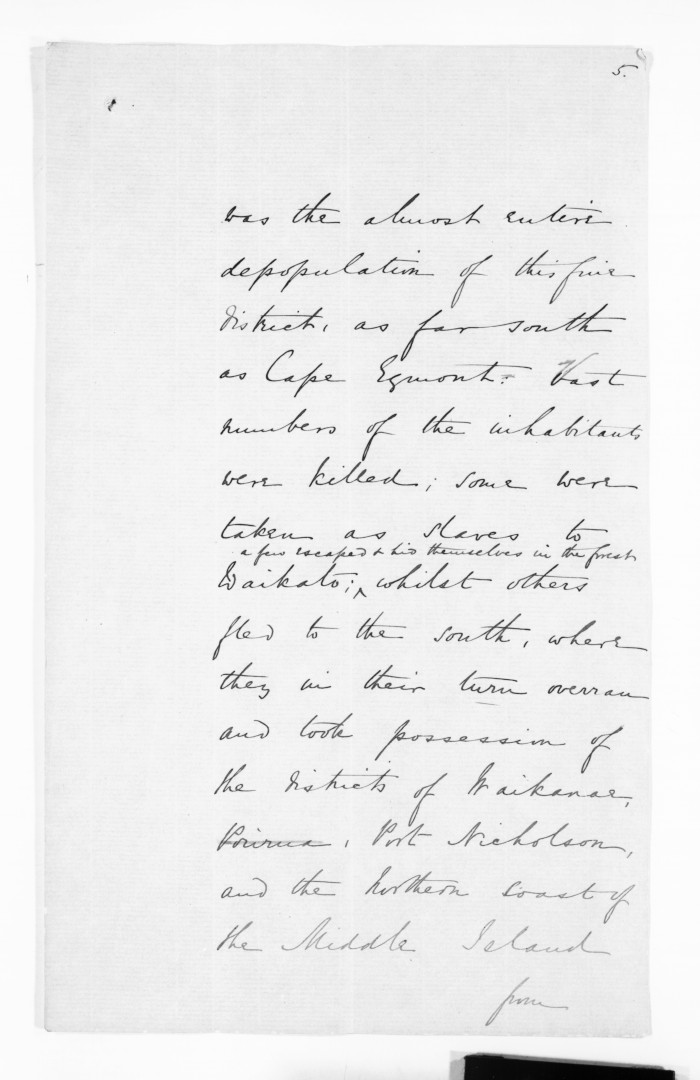 5.
was the almost entire
depopulation of this fine
district, as far south
as Cape Egmont. Vast
numbers of the inhabitants
were killed; some were
taken as slaves to
a few escaped & hid themselves in the forest
Waikato; ^ whilst others
fled to the south, where
they in their turn overran
and took possession of
the districts of Waikanae,
Porirua, Port Nicholson,
and the Northern coast of
the Middle Island
from